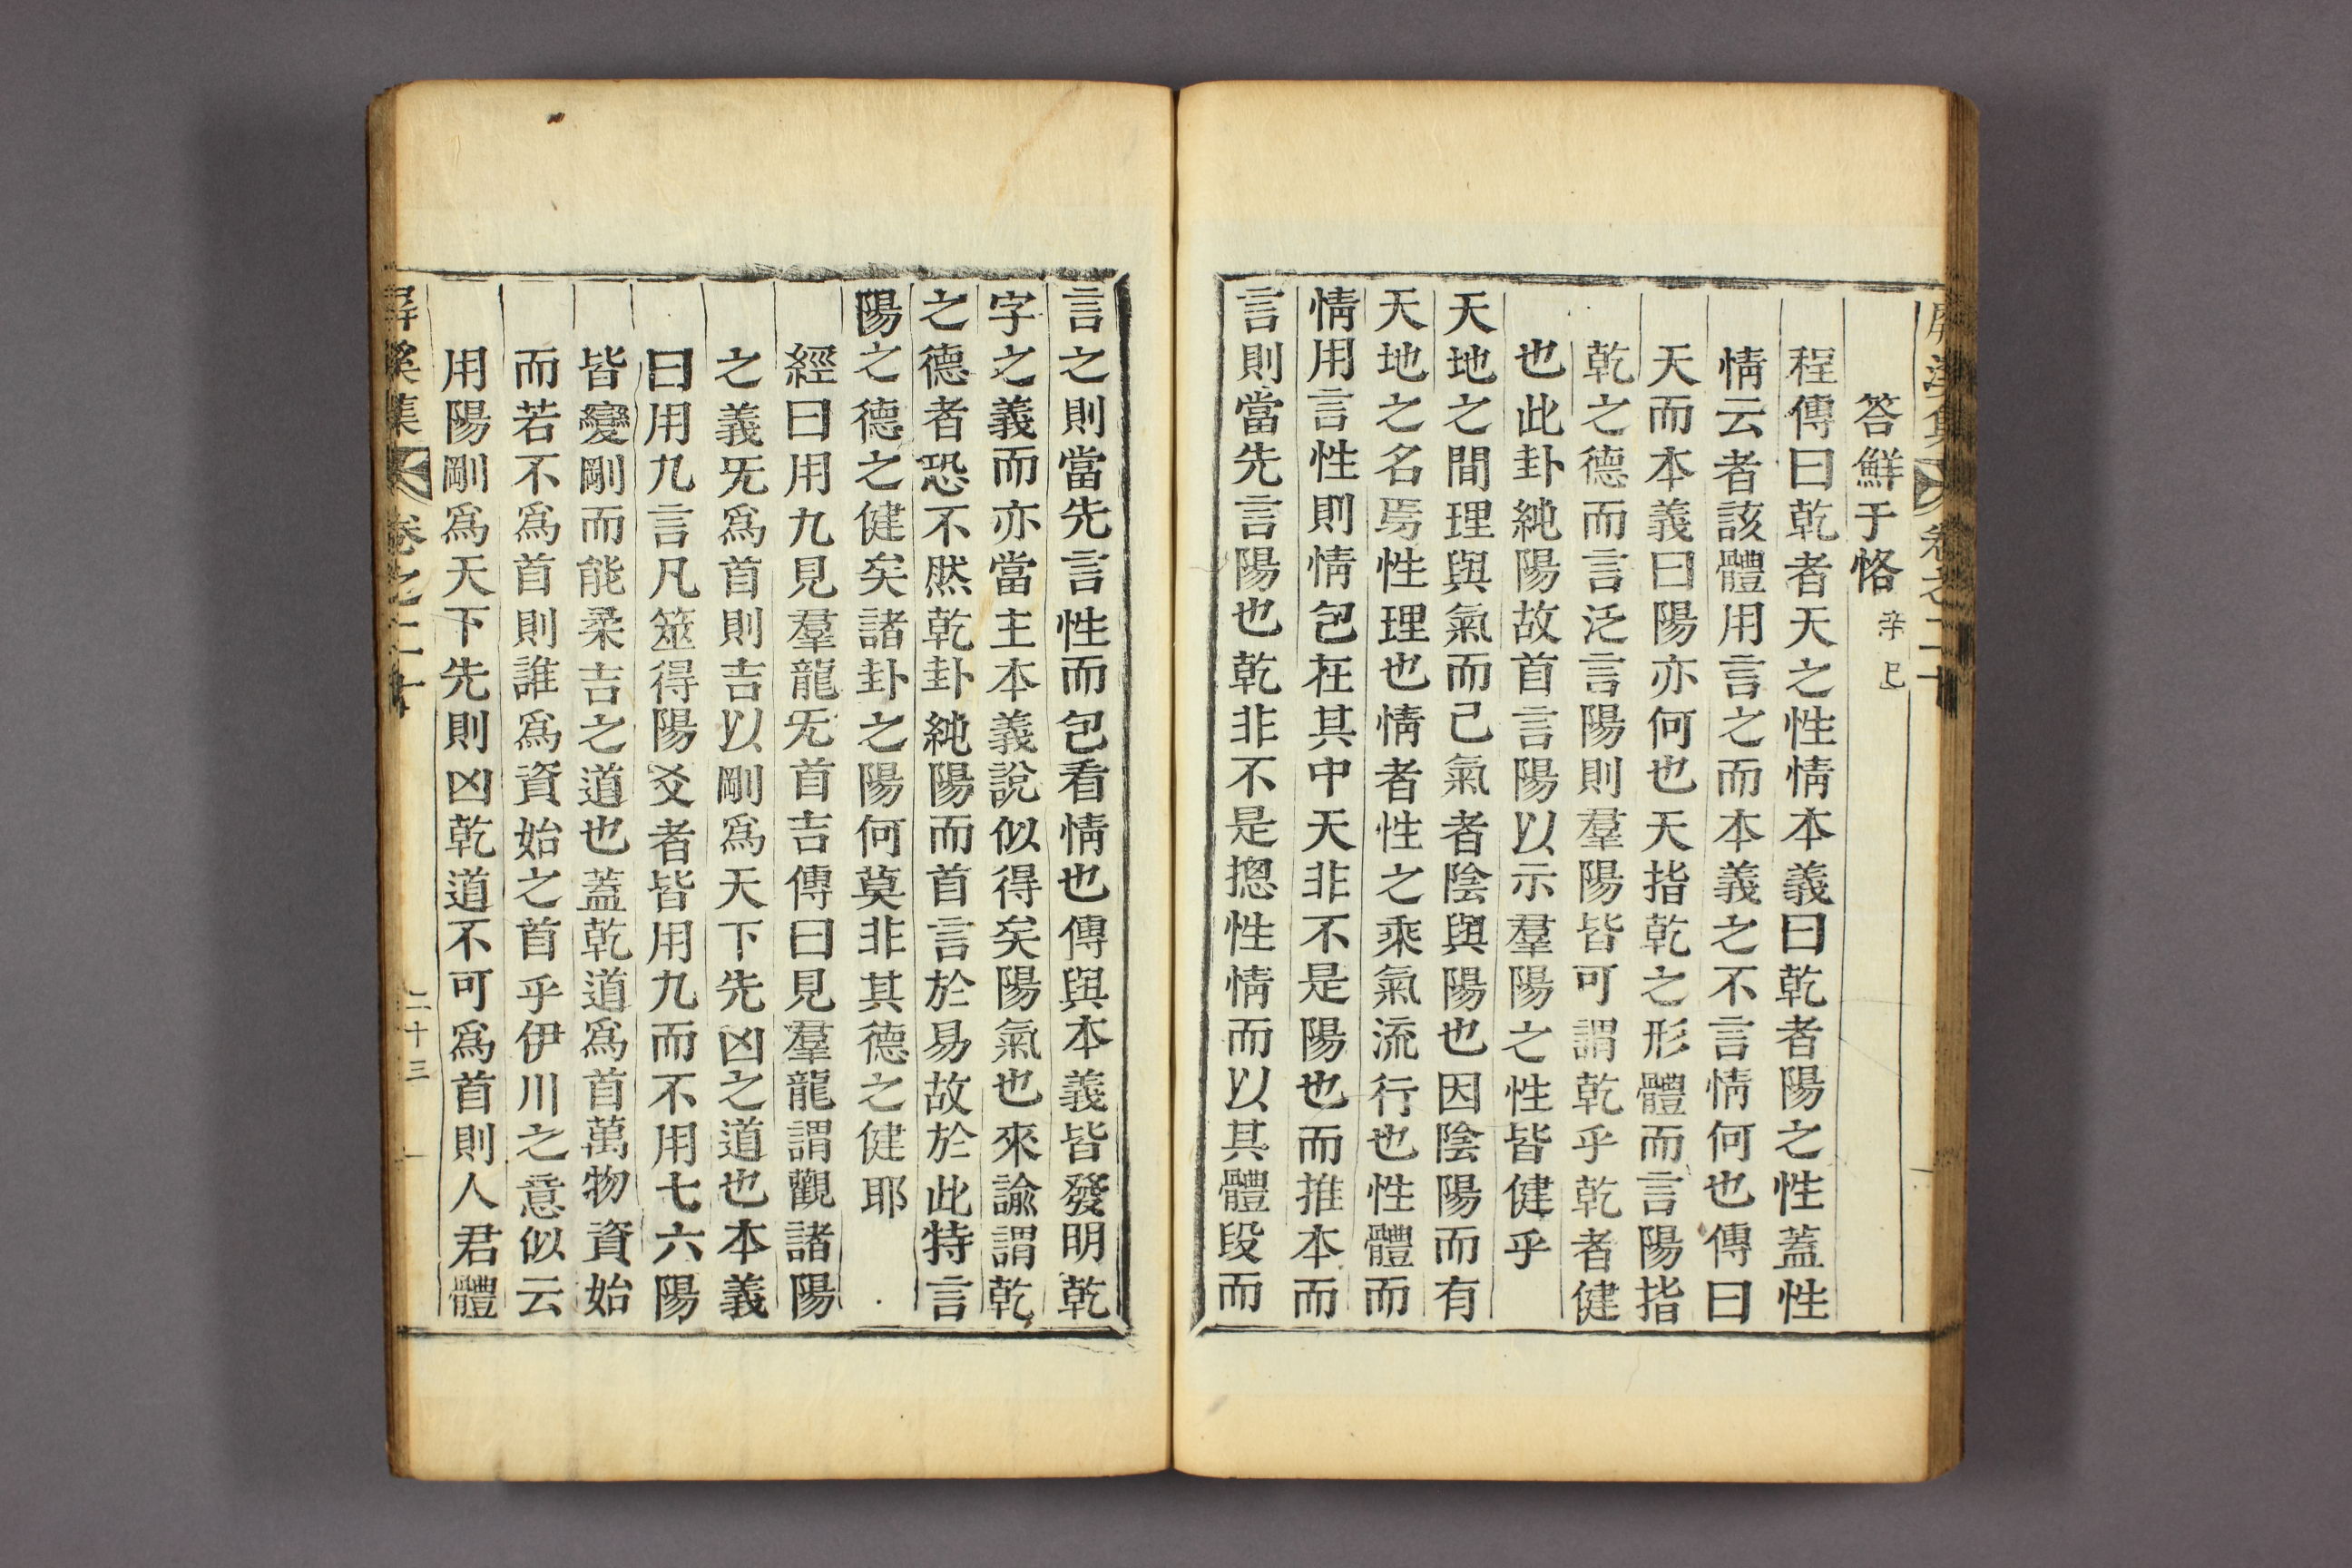 屏溪集 卷之二十
答鮮于恪 辛巳
程傳曰乾者天之性情本義曰乾者陽之性蓋性
情云者該體用言之而本義之不言情何也傳曰
天而本義曰陽亦何也天指乾之形體而言陽指
乾之德而言泛言陽則羣陽皆可謂乾乎乾者健
也此卦純陽故首言陽以示羣陽之性皆健乎
天地之間理與氣而已氣者陰與陽也因陰陽而有
天地之名焉性理也情者性之乘氣流行也性體而
情用言性則情包在其中天非不是陽也而推本而
言則當先言陽也乾非不是摠性情而以其體段而
言之則當先言性而包看情也傳與本義皆發明乾
字之義而亦當主本義說似得矣陽氣也來諭謂乾
之德者恐不然乾卦純陽而首言於易故於此特言
陽之德之健矣諸卦之陽何莫非其德之健耶
經曰用九見羣龍旡首吉傳曰見羣龍謂觀諸陽
之義旡爲首則吉以剛爲天下先凶之道也本義
曰用九言凡筮得陽爻者皆用九而不用七六陽
皆變剛而能柔吉之道也蓋乾道爲首萬物資始
而若不爲首則誰爲資始之首乎伊川之意似云
用陽剛爲天下先則凶乾道不可爲首則人君體
屏溪集 卷之二十 二十三